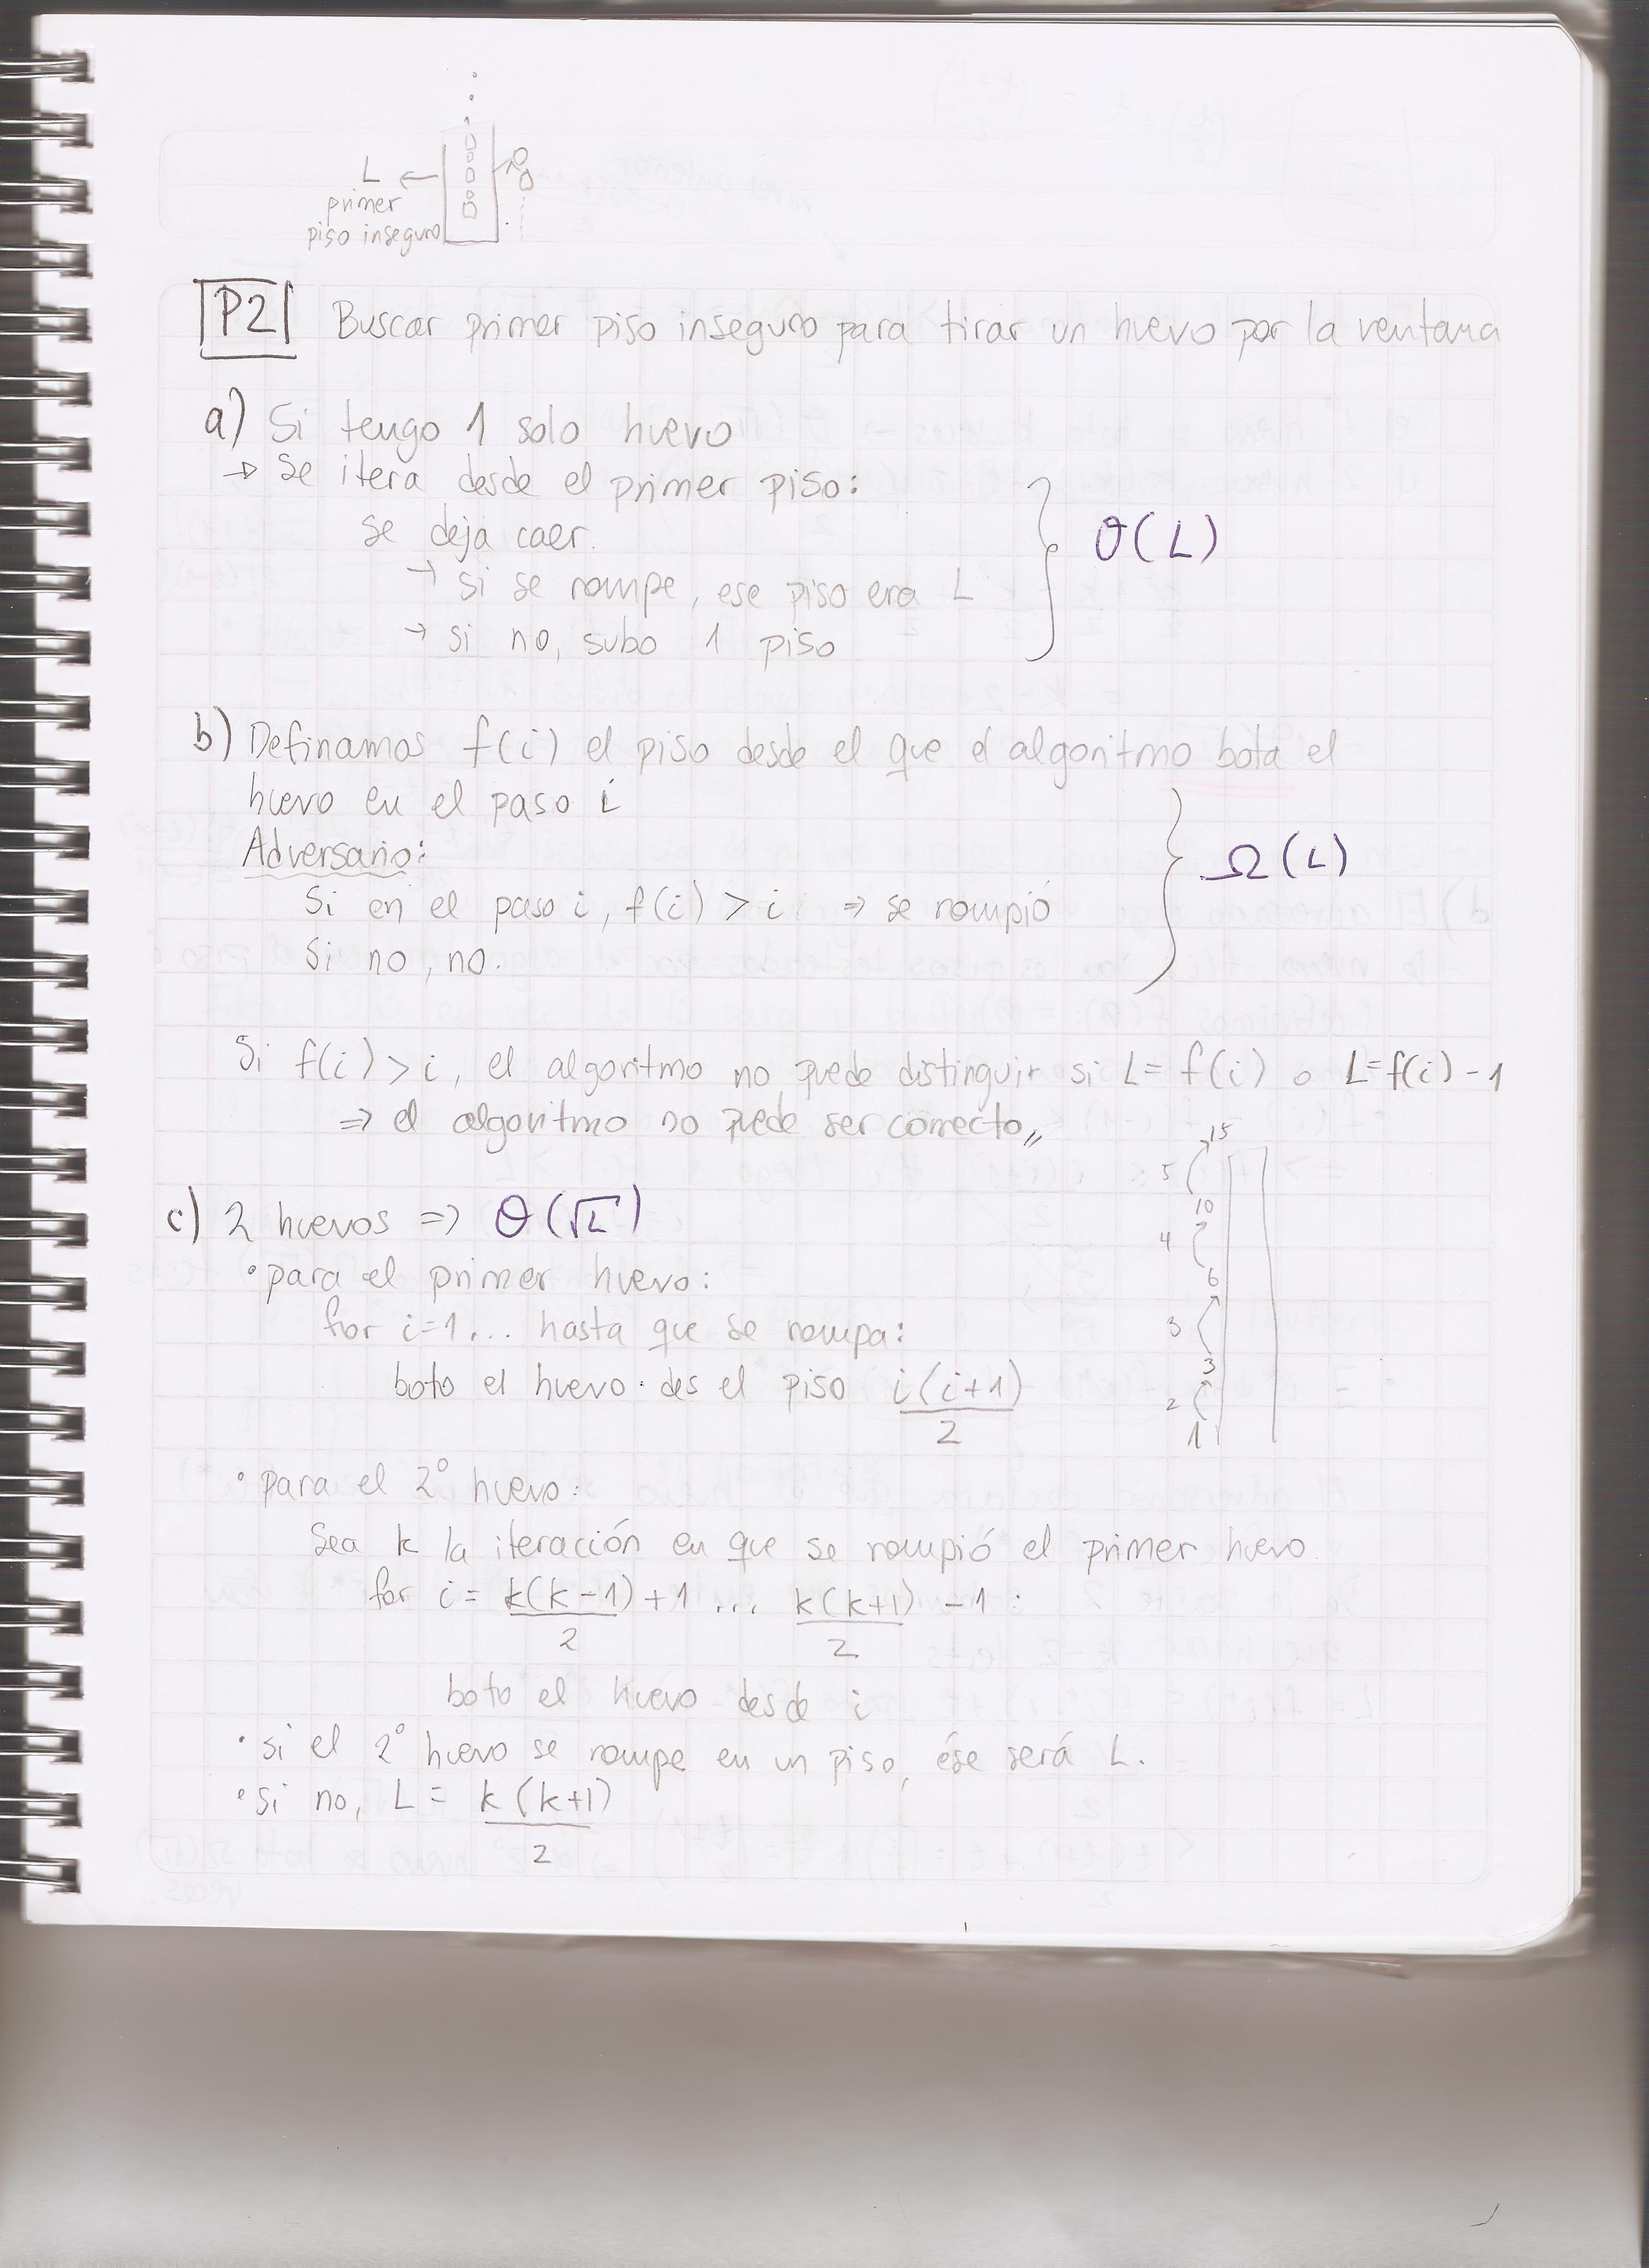 L ←
primer
piso inseguro
P2 Buscar primer piso inseguro para tirar un huevo por la ventana
a) Si tengo 1 solo huevo
→ Se itera desde el primer piso:
se deja caer.
→ si se rompe, ese piso era L
→ si no, subo 1 piso
O(L)
b) Definamos f(i) el piso desde el que el algoritmo bota el
huevo en el paso i
Adversario:
Si en el paso i, f(i) > i ⇒ se rompió
Si no, no.
Ω(L)
Si f(i) > i, el algoritmo no puede distinguir si L = f(i) o L=f(i)-1
⇒ el algoritmo no puede ser correcto,,
c) 2 huevos ⇒ Θ(√L)
• para el primer huevo:
for i=1... hasta que se rompa:
boto el huevo des el piso i(i+1)/2
15
5
10
4
6
3
3
2
1
• para el 2° huevo:
Sea k la iteración en que se rompió el primer huevo
for i = k(k-1)/2 + 1 ... k(k+1)/2 - 1 :
boto el huevo desde i
• si el 2° huevo se rompe en un piso, ése será L.
• si no, L = k(k+1)/2